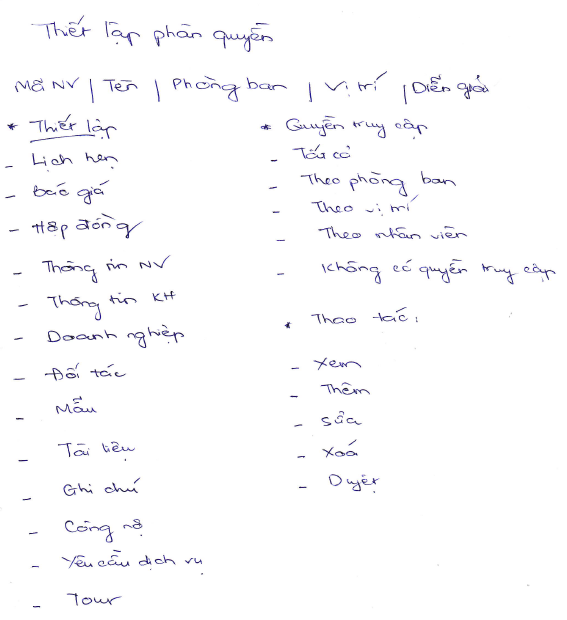 Thiết lập phân quyền
Mã NV | Tên | Phòng ban | Vị trí | Diễn giải
* Thiết lập
- Lịch hẹn
- Báo giá
- Hợp đồng
- Thông tin NV
- Thông tin KH
- Doanh nghiệp
- Đối tác
- Mẫu
- Tài liệu
- Ghi chú
- Công nợ
- Yêu cầu dịch vụ
- Tour
* Quyền truy cập
- Tất cả
- Theo phòng ban
- Theo vị trí
- Theo nhân viên
- Không có quyền truy cập
* Thao tác:
- Xem
- Thêm
- Sửa
- Xoá
- Duyệt